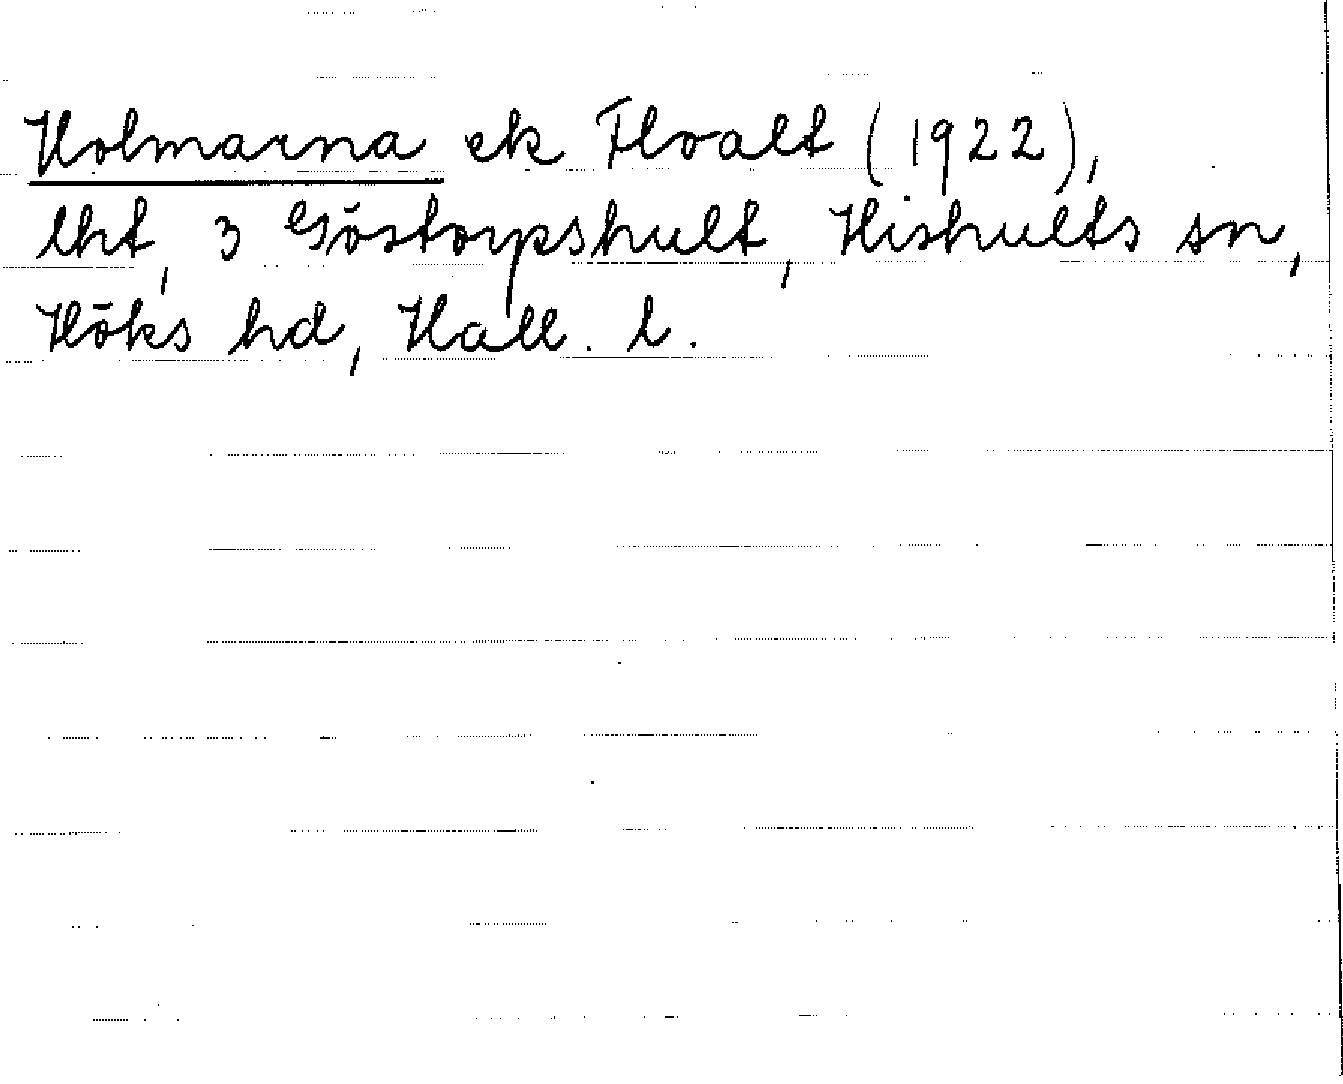 Holmarna ek Floalt (1922),
lht, 3 Göstorpshult, Hishults sn,
Höks hd, Hall. l.